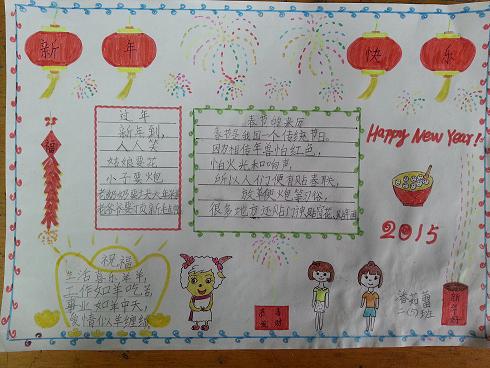 新 年 快 乐
过年
新年到,
人人笑
姑娘要花
小子要炮
春节的来历
春节是我国一个传统节日。
因为相传年兽怕红色,
怕火光和响声,
所以人们便有贴春联,
放鞭炮等习俗,
很多地
Happy New Year!
福
2015
祝福
生活喜气羊羊,
工作如羊吃草
事业如羊中天,
爱情似羊缠绵
恭喜
发财
二(5)班
新年好